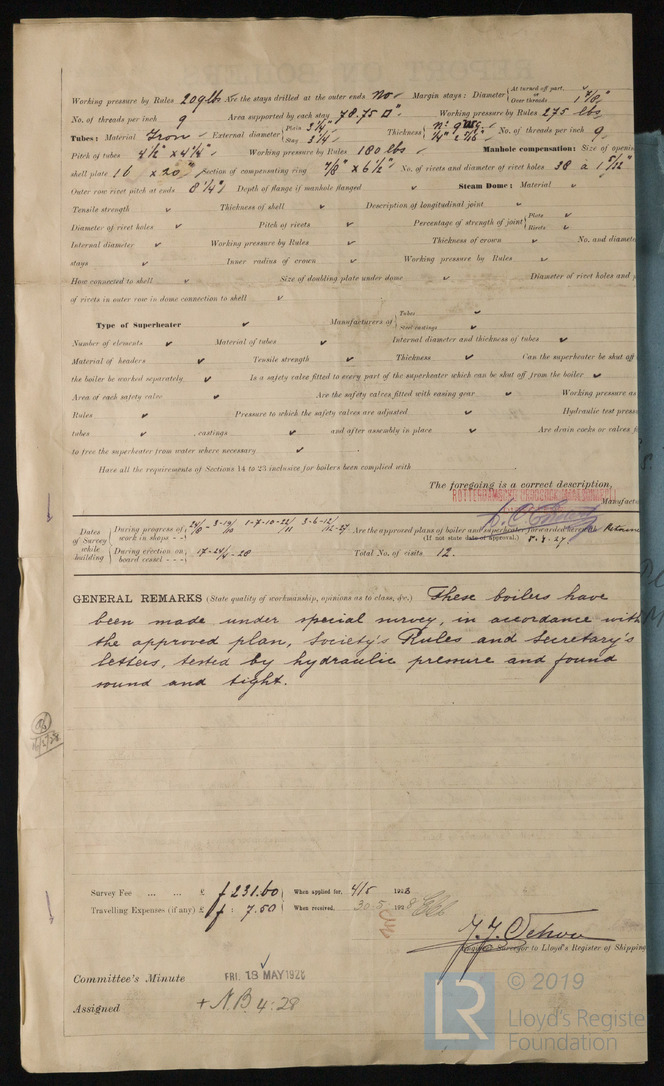 Working pressure by Rules 209 lbs Are the stays drilled at the outer ends No Margin stays: Diameter { At turned off part, or Over threads 1 7/8"
No. of threads per inch 9 Area supported by each stay 78.75 □" Working pressure by Rules 275 lbs
Tubes: Material Iron External diameter { Plain 3 1/4" Stay 3 1/4" Thickness { No. of threads per inch 9
Pitch of tubes 4 1/2" x 4 1/4" Working pressure by Rules 180 lbs Manhole compensation: Size of openin
shell plate 16 x 20" Section of compensating ring 7/8" x 6 1/2" No. of rivets and diameter of rivet holes 38 à
Outer row rivet pitch at ends 8 1/4" Depth of flange if manhole flanged ✓ Steam Dome: Material ✓
Tensile strength ✓ Thickness of shell ✓ Description of longitudinal joint ✓
Diameter of rivet holes ✓ Pitch of rivets ✓ Percentage of strength of joint { Plate ✓ Rivets ✓
Internal diameter ✓ Working pressure by Rules ✓ Thickness of crown ✓ No. and diamete
stays ✓ Inner radius of crown ✓ Working pressure by Rules ✓
How connected to shell ✓ Size of doubling plate under dome ✓ Diameter of rivet holes and p
of rivets in outer row in dome connection to shell ✓
Type of Superheater ✓ Manufacturers of { Tubes ✓ Steel castings ✓
Number of elements ✓ Material of tubes ✓ Internal diameter and thickness of tubes ✓
Material of headers ✓ Tensile strength ✓ Thickness ✓ Can the superheater be shut off
the boiler be worked separately ✓ Is a safety valve fitted to every part of the superheater which can be shut off from the boiler ✓
Area of each safety valve ✓ Are the safety valves fitted with easing gear ✓ Working pressure as
Rules ✓ Pressure to which the safety valves are adjusted ✓ Hydraulic test press
tubes ✓ , castings ✓ and after assembly in place ✓ Are drain cocks or valves f
to free the superheater from water where necessary ✓
Have all the requirements of Sections 14 to 23 inclusive for boilers been complied with
The foregoing is a correct description,
ROTTERDAMSCHE DROOGDOK MAATSCHAPPIJ
Manufactu
Dates of Survey while building { During progress of work in shops - - { 3-19/10 1-7-10-22/11 3-6-12/12-27 Are the approved plans of boiler and superheater forwarded herewith
(If not state date of approval.) 5.8.27
During erection on board vessel - - - { 17-24/4-28 Total No. of visits 12.
GENERAL REMARKS (State quality of workmanship, opinions as to class, &c.) These boilers have
been made under special survey, in accordance with
the approved plan, Society's Rules and Secretary's
letters, tested by hydraulic pressure and found
sound and tight.
Survey Fee ... ... £ ƒ 231.60 When applied for, 4/5 1928
Travelling Expenses (if any) £ ƒ : 7.50 When received, 30.5 1928
Surveyor to Lloyd's Register of Shipping
Committee's Minute FRI. 18 MAY 1928
Assigned + N.B. 4.28
LR © 2019
Lloyd's Register
Foundation